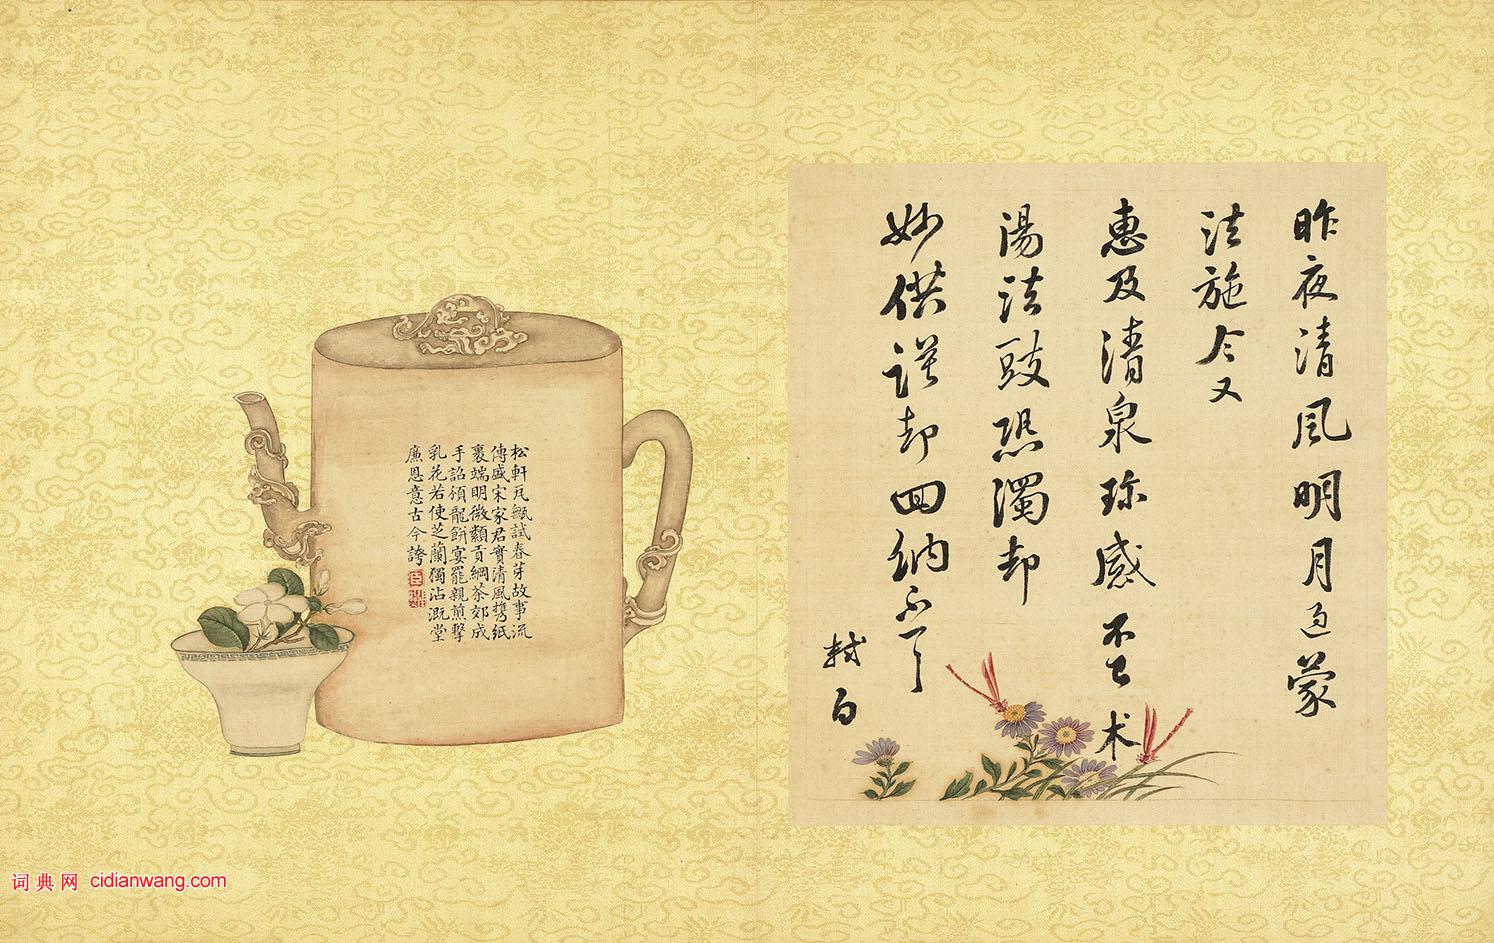 昨夜清風明月過蒙
法施今又
惠及清泉珍感不已木
湯法豉恐濁却
妙供謹却回納不一一
軾白
松軒瓦甌試春芽故事流
傳盛宋家君實清風攜紙
裹端明微纇貢綱茶郊成
手詔頒龍餅宴罷親煎擊
乳花若使芝蘭獨沾溉堂
廉恩意古今誇
词典网 cidianwang.com